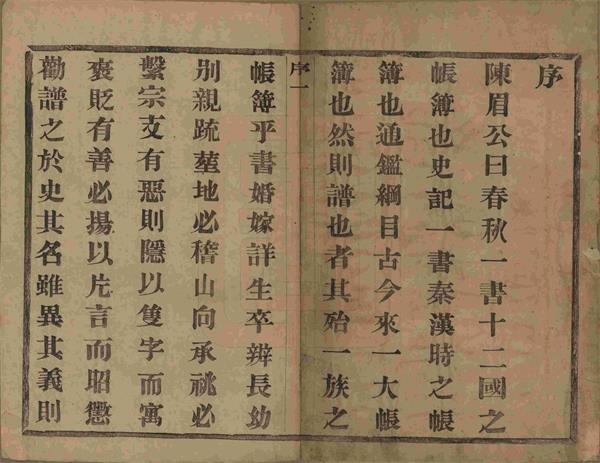 序
陳眉公曰春秋一書十二國之
帳簿也史記一書秦漢時之帳
簿也通鑑綱目古今來一大帳
簿也然則譜也者其殆一族之
序一
帳簿乎書婚嫁詳生卒辨長幼
别親疏塋地必稽山向承祧必
繫宗支有惡則隱以隻字而寓
襃貶有善必揚以片言而昭懲
勸譜之於史其名雖異其義則